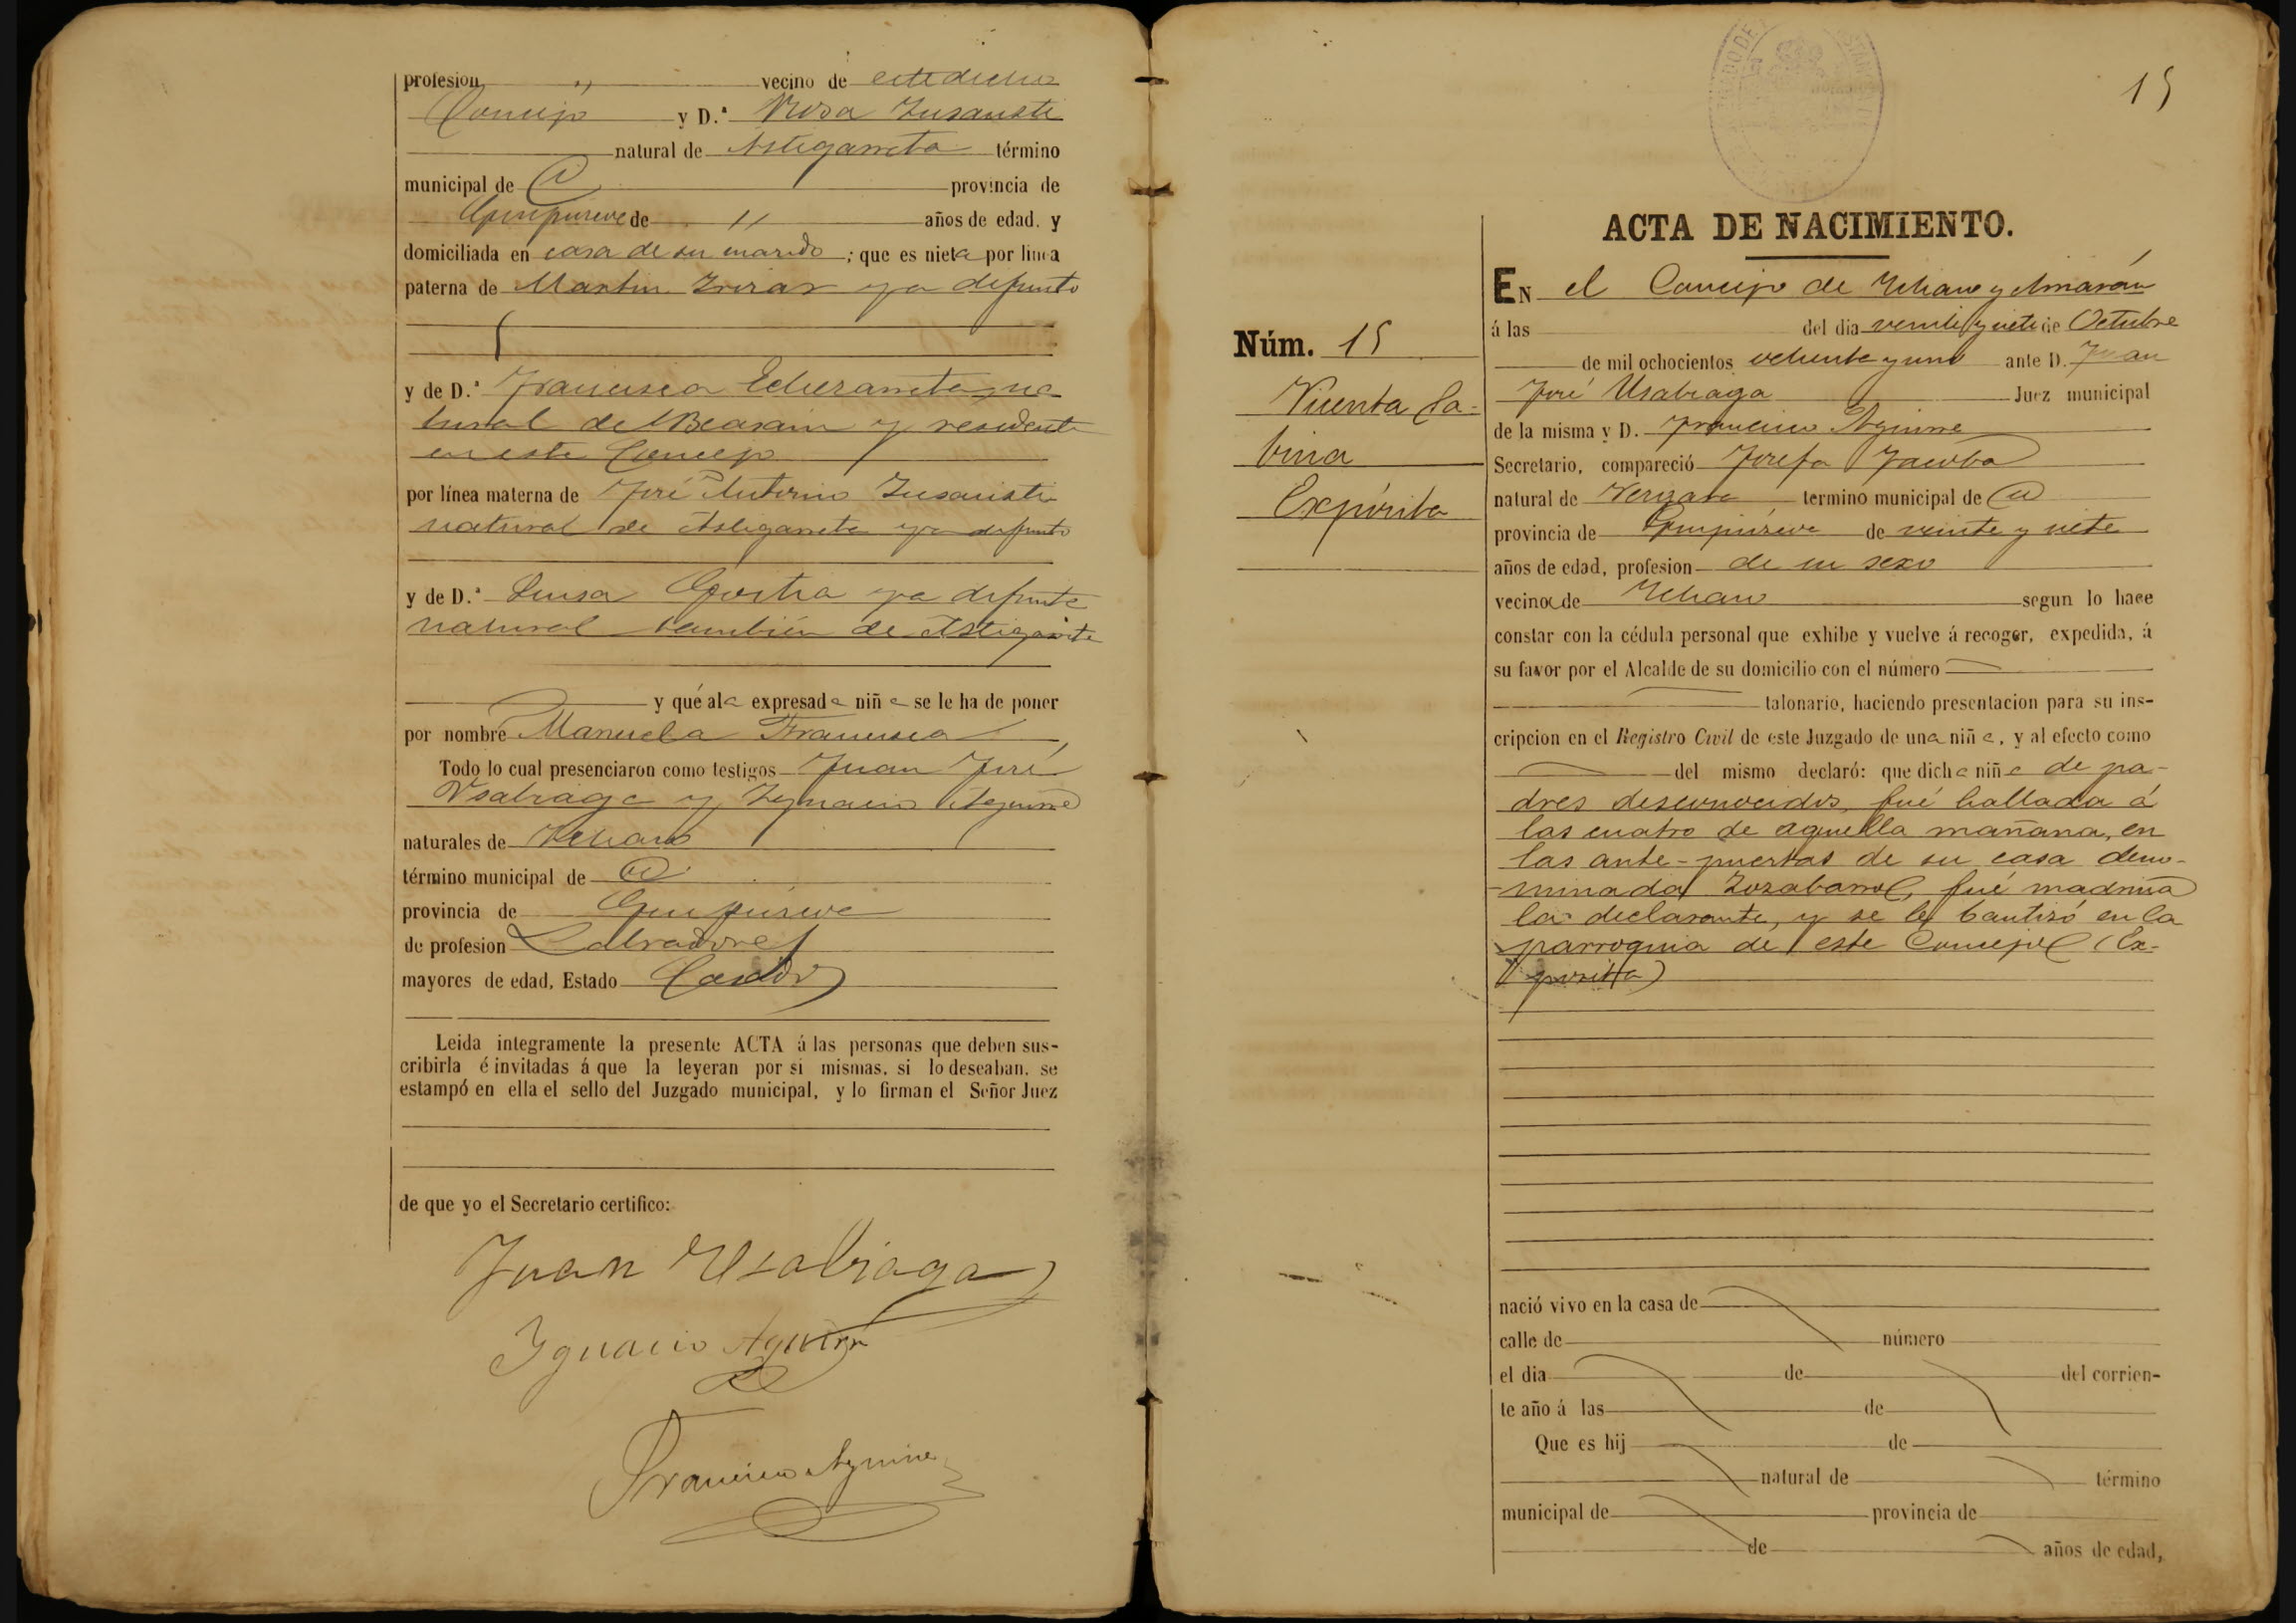 profesion " vecino de este dicho
Concejo y D.ª Rosa Insausti
natural de Astigarreta término
municipal de id provincia de
Guipúzcoa de " años de edad. y
domiciliada en casa de su marido ; que es nieta por línea
paterna de Martin Irizar ya difunto
y de D.ª Francisca Echezarreta na
tural de Beasain y residente
en este Concejo
por línea materna de José Antonio Insausti
natural de Astigarreta ya difunto
y de D.ª Luisa ya difunta
natural también de Astigarreta
y qué al a expresad a niñ a se le ha de poner
por nombre Manuela Francisca
Todo lo cual presenciaron como testigos Juan José
Usabiaga y Ignacio Aguirre
naturales de Ichaso
término municipal de id
provincia de Guipúzcoa
de profesion Labradores
mayores de edad, Estado Casados
Leida integramente la presente ACTA á las personas que deben sus-
cribirla é invitadas á que la leyeran por si mismas. si lo deseaban. se
estampó en ella el sello del Juzgado municipal, y lo firman el Señor Juez
de que yo el Secretario certifico:
Juan Usabiaga
Ignacio Aguirre
Francisco Aguirre
15
ACTA DE NACIMIENTO.
Núm. 15
Vicenta Sa-
bina
Expósita
EN el Concejo de Ichaso y Arriarán
á las del dia veinte y siete de Octubre
de mil ochocientos ochenta y uno ante D. Juan
José Usabiaga Juez municipal
de la misma y D. Francisco Aguirre
Secretario, compareció Josefa Jacoba
natural de Vergara termino municipal de id
provincia de Guipúzcoa de veinte y siete
años de edad, profesion de su sexo
vecina de Ichaso segun lo hace
constar con la cédula personal que exhibe y vuelve á recoger, expedida, á
su favor por el Alcalde de su domicilio con el número
talonario, haciendo presentacion para su ins-
cripcion en el Registro Civil de este Juzgado de una niñ a, y al efecto como
del mismo declaró: que dich a niñ a de pa-
dres desconocidos, fué hallada á
las cuatro de aquella mañana, en
las ante-puertas de su casa deno-
minada fué madrina
la declarante, y se le bautizó en la
parroquia de este Concejo (Ex-
pósita)
nació vivo en la casa de
calle de número
el dia de del corrien-
te año á las de
Que es hij de
natural de término
municipal de provincia de
de años de edad,